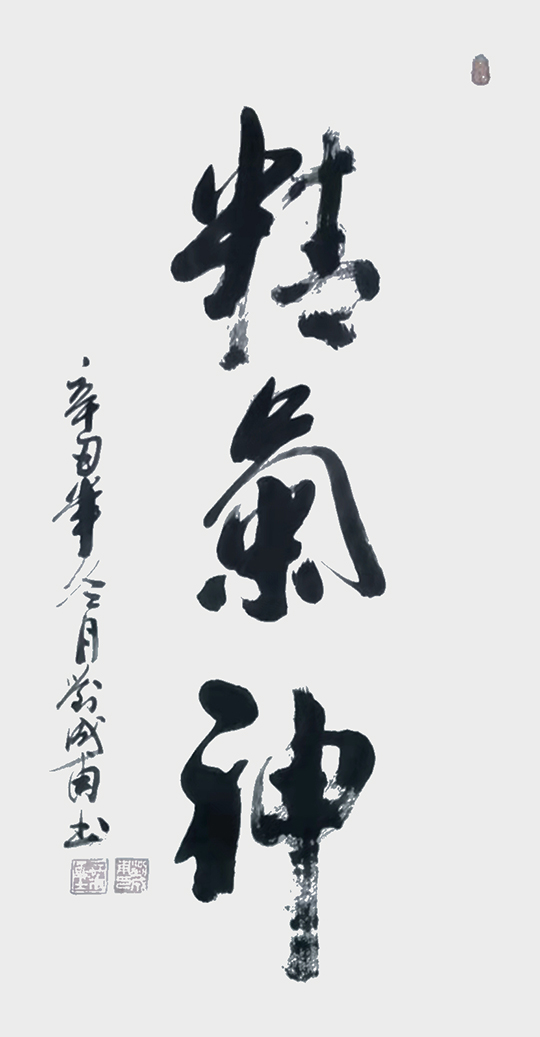 精氣神
辛丑年冬月劉成書